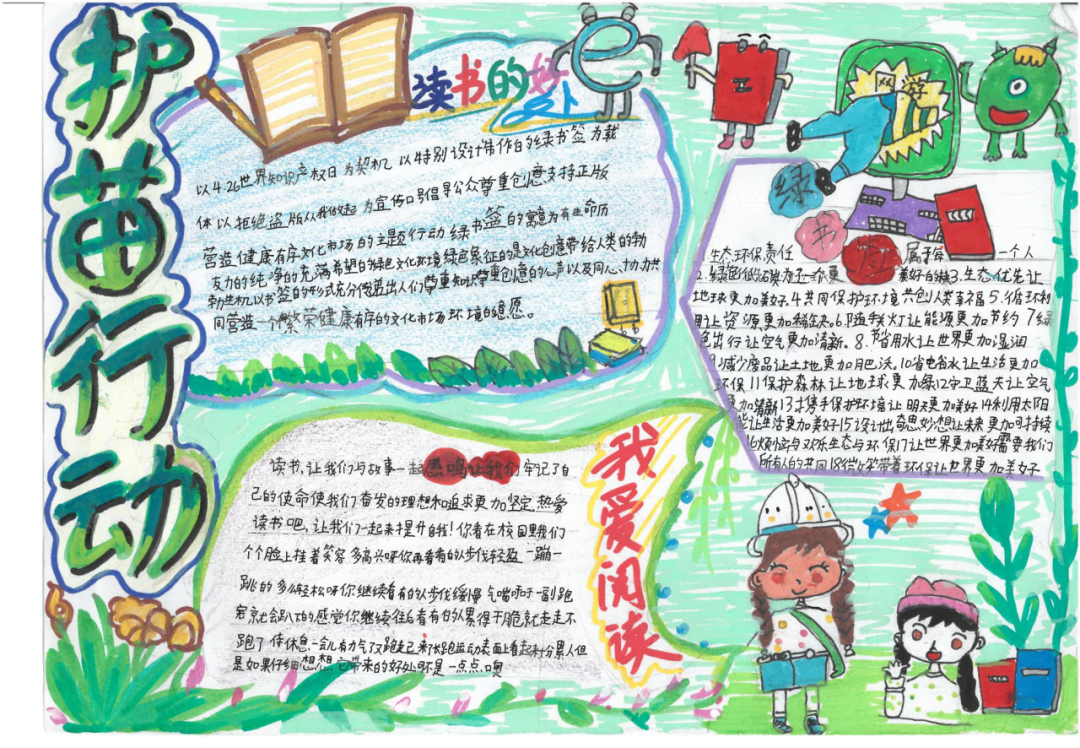 护苗行动
读书的好处
以4.26世界知识产权日为契机 以特别设计制作的绿书签为载
体以拒绝盗版从我做起为宣传口号倡导公众尊重创意支持正版
营造健康有序文化市场的主题行动绿书签的寓意为有生命历
友力的纯净的充满希望的绿色文化环境绿色象征的是文化创意带给人类的勃
勃生机以书签的形式充分传递出人们尊重知识尊重创意的心声以及同心协力共
同营造一个繁荣健康有序的文化市场环境的意愿。
网游
绿
书
签
生态环保责任 属于每一个人
2.绿色低碳 美好的林3.生态优先让
地球更加美好.4共同保护环境共创人类幸福5.循环利
用让资源更加 6.随手关灯让能源更加节约 7绿
色出行让空气更加清新。8.节省用水让世界更加湿润
9减少废品让土地更加肥沃。10省电省水让生活更加
环保11保护森林让地球更加绿12守卫蓝天让空气
更加清新13携手保护环境让明天更加美好14利用太阳
能让生活更加美好15设计出奇思妙想让未来更加可持续
16烦恼与欢乐生态与环保17让世界更加美好需要我们
所有人的共同18 带着环保让世界更加美好
我爱阅读
读书,让我们与故事一起感鸣让我们牢记了自
己的使命使我们奋发的理想和追求更加坚定,热爱
读书吧,让我们一起来提升自我!你看在校园里我们
个个脸上挂着笑容多高兴呀你再看看的步伐轻盈一蹦一
跳的多么轻松呀你继续看有的步伐缓慢气喘吁吁一副跑
完就会趴下的感觉你继续往后看有的累得干脆就走走不
跑了 休息一会儿有力气了又跑起来 跑运动表面上看起来十分累人但
是如果仔细想想它带来的好处可不是一点点噢